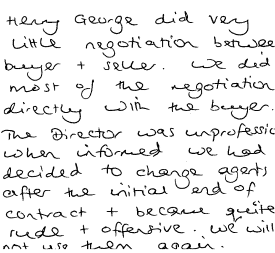 Henry George did very
little negotiation between
buyer + seller. We did
most of the negotiation
directly with the buyer.
The Director was unprofessio
when informed we had
decided to change agents
after the initial end of
contract + became quite
rude + offensive. We will
not use them again.